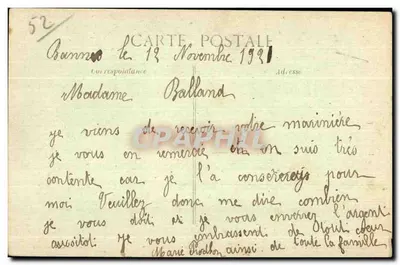 52
CARTE POSTALE
Bannes le 12 Novembre 1921
Correspondance Adresse
Madame Balland
je viens de recevoir votre marinière
je vous en remercie en suis très
contente car je l'a conserverais pour
moi Veuillez donc me dire combien
je vous dois et je vous enverrai l'argent
aussitôt je vous embrassent de tout coeur
Marie ainsi de toute la famille